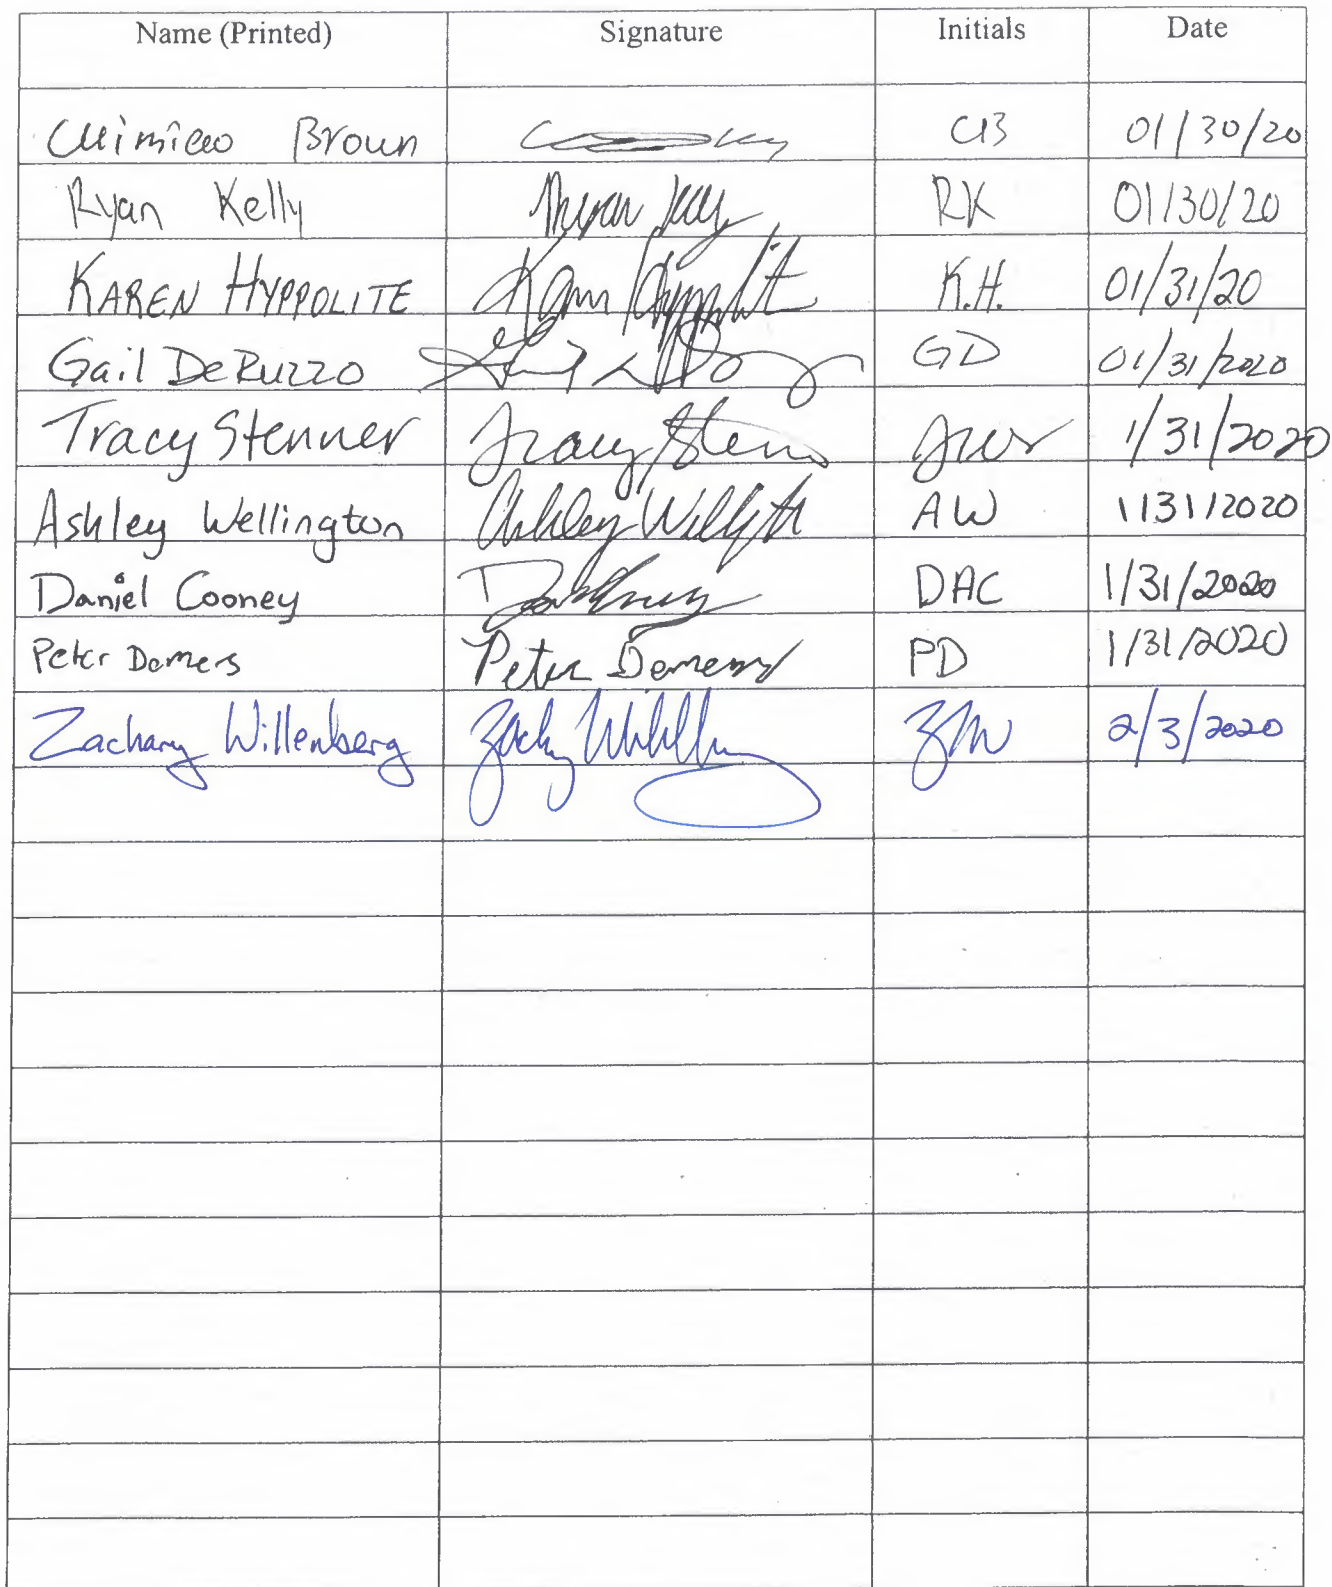 Name (Printed) Signature Initials Date
Brown CB 01/30/20
Ryan Kelly Ryan Kelly RK 01/30/20
KAREN HYPPOLITE Karen Hyppolit K.H. 01/31/20
Gail DeRuzzo GD 01/31/2020
Tracy Stenner Tracy Stenn 1/31/2020
Ashley Wellington Ashley AW 1/31/2020
Daniel Cooney DAC 1/31/2020
Peter Demers Peter Demers PD 1/31/2020
Zachary Willenberg ZMW 2/3/2020